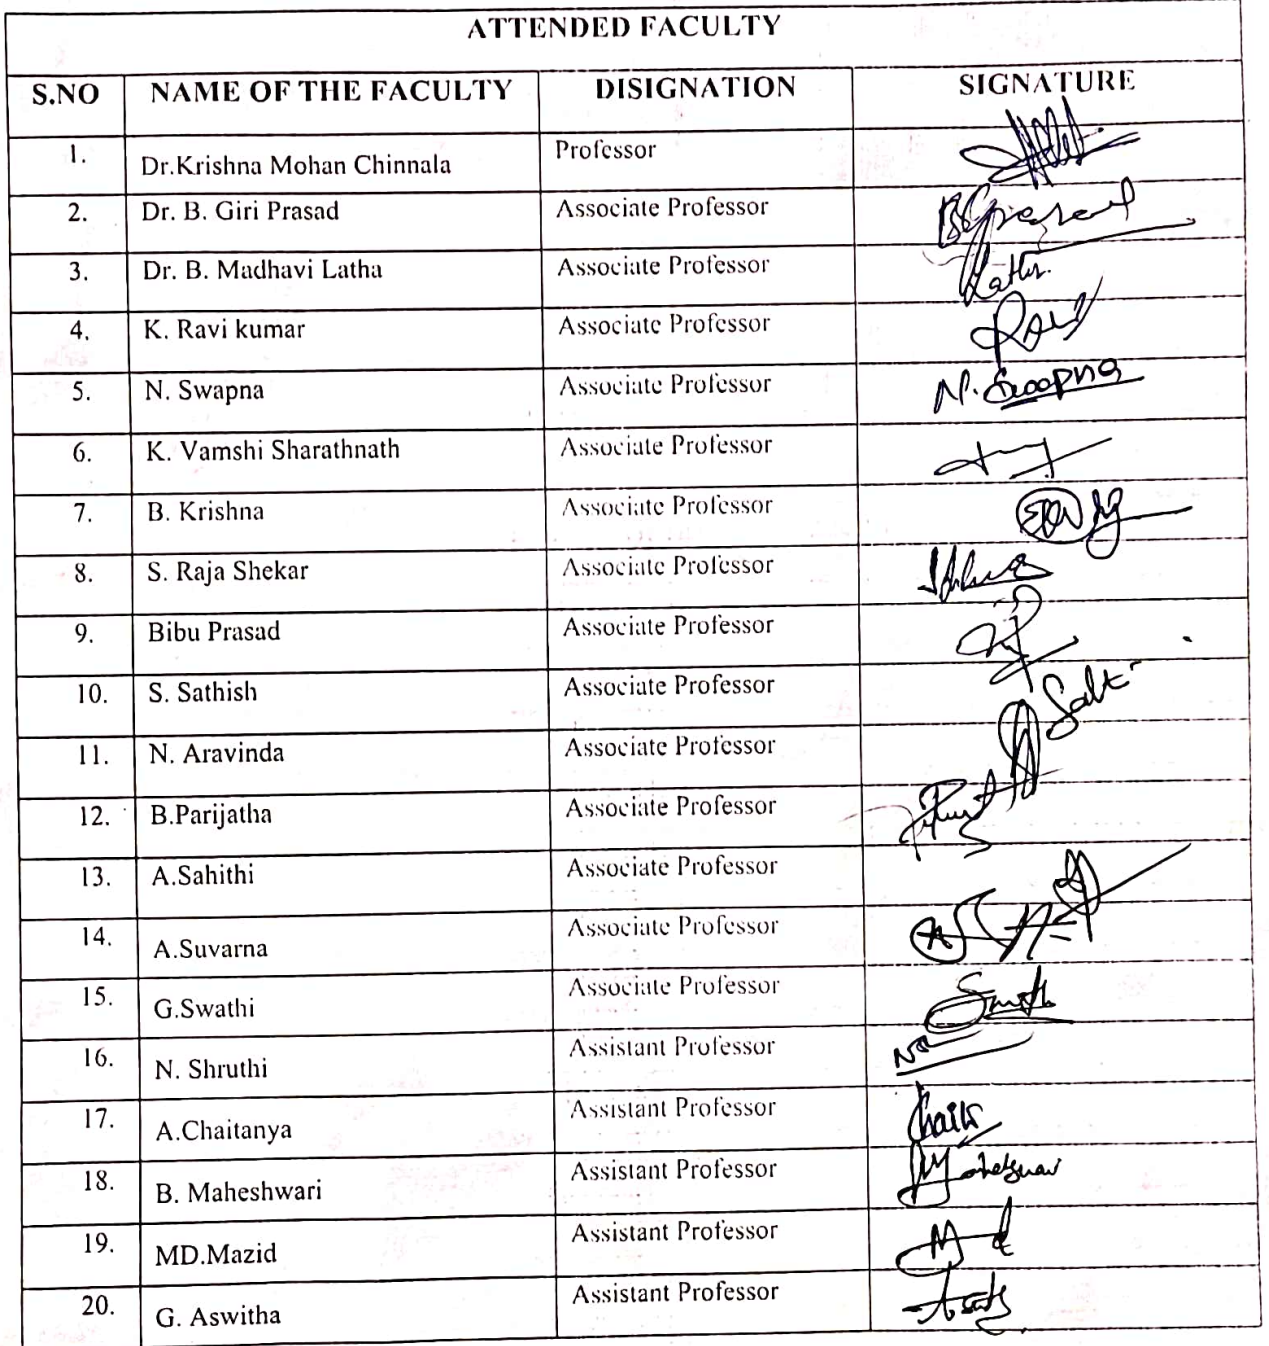 ATTENDED FACULTY
S.NO NAME OF THE FACULTY DISIGNATION SIGNATURE
1. Dr.Krishna Mohan Chinnala Professor
2. Dr. B. Giri Prasad Associate Professor BGprasad
3. Dr. B. Madhavi Latha Associate Professor Latha
4. K. Ravi kumar Associate Professor Ravi
5. N. Swapna Associate Professor N. Swapna
6. K. Vamshi Sharathnath Associate Professor
7. B. Krishna Associate Professor
8. S. Raja Shekar Associate Professor
9. Bibu Prasad Associate Professor
10. S. Sathish Associate Professor
11. N. Aravinda Associate Professor
12. B.Parijatha Associate Professor
13. A.Sahithi Associate Professor
14. A.Suvarna Associate Professor
15. G.Swathi Associate Professor
16. N. Shruthi Assistant Professor
17. A.Chaitanya Assistant Professor
18. B. Maheshwari Assistant Professor
19. MD.Mazid Assistant Professor
20. G. Aswitha Assistant Professor